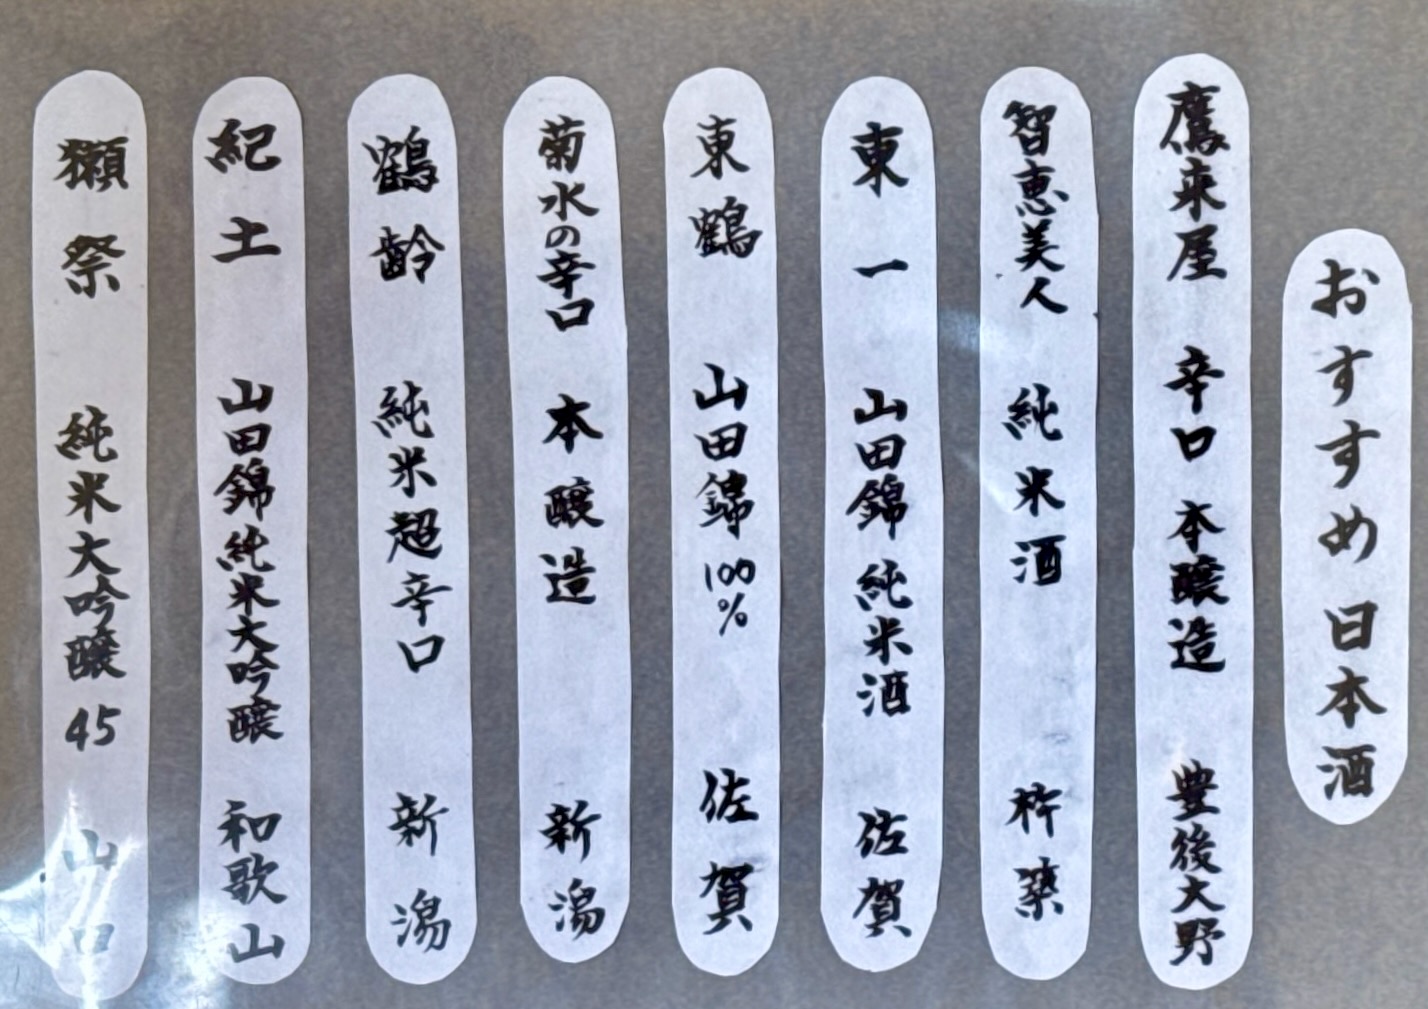 おすすめ日本酒
鷹来屋 辛口 本醸造 豊後大野
智恵美人 純米酒 杵築
東一 山田錦 純米酒 佐賀
東鶴 山田錦100% 佐賀
菊水の辛口 本醸造 新潟
鶴齢 純米超辛口 新潟
紀土 山田錦純米大吟醸 和歌山
獺祭 純米大吟醸45 山口